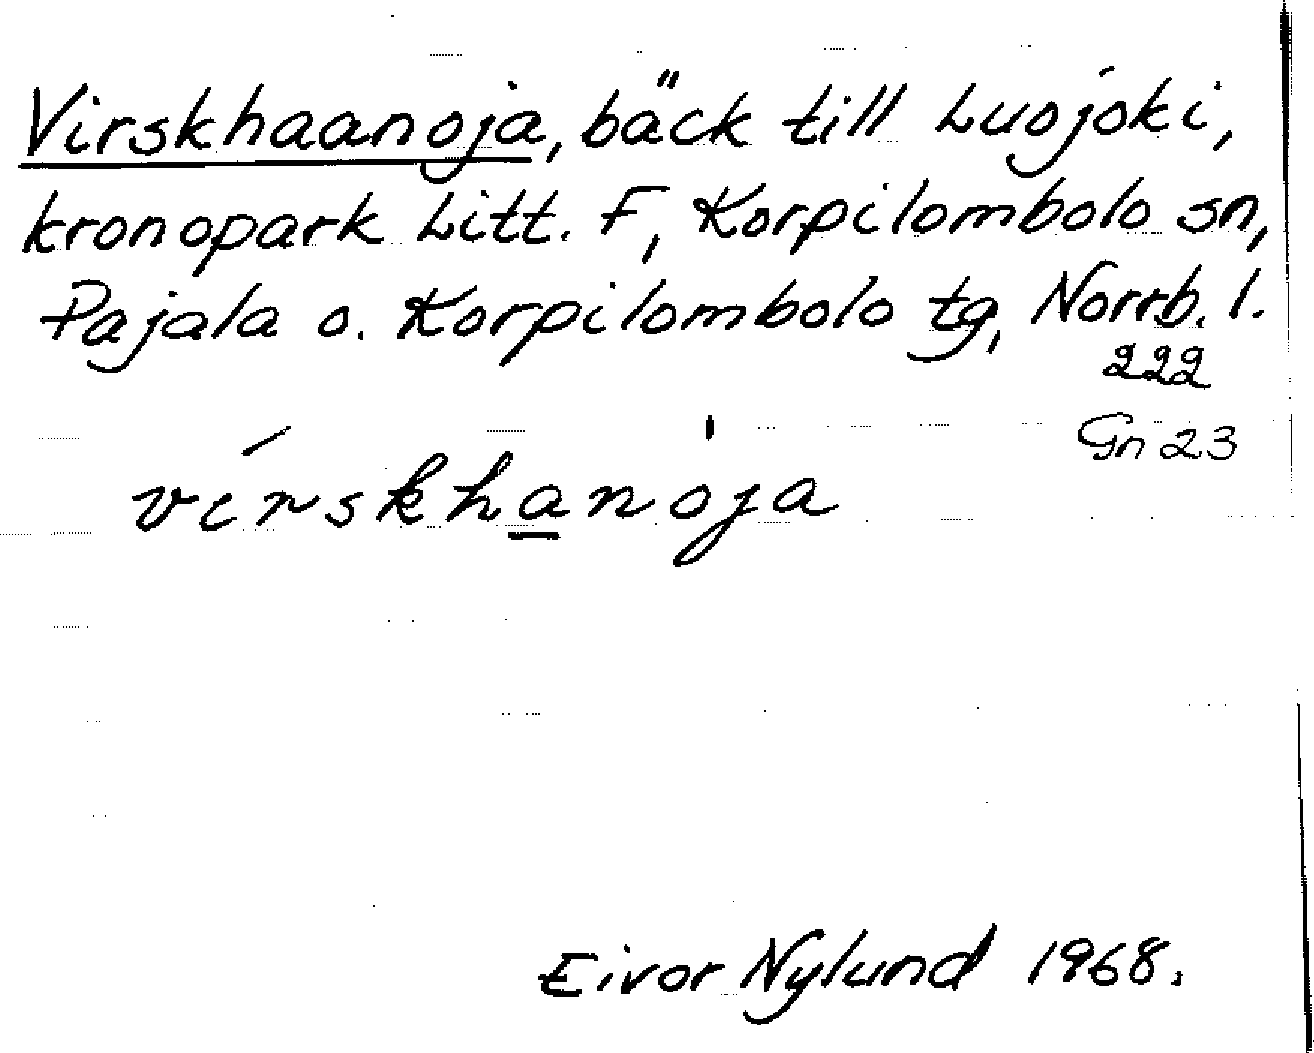 Virskhaanoja, bäck till Luojoki,
kronopark Litt. F, Korpilombolo sn,
Pajala o. Korpilombolo tg, Norrb. l.
222
Gn 23
vírskha̲no̍ja
Eivor Nylund 1968.